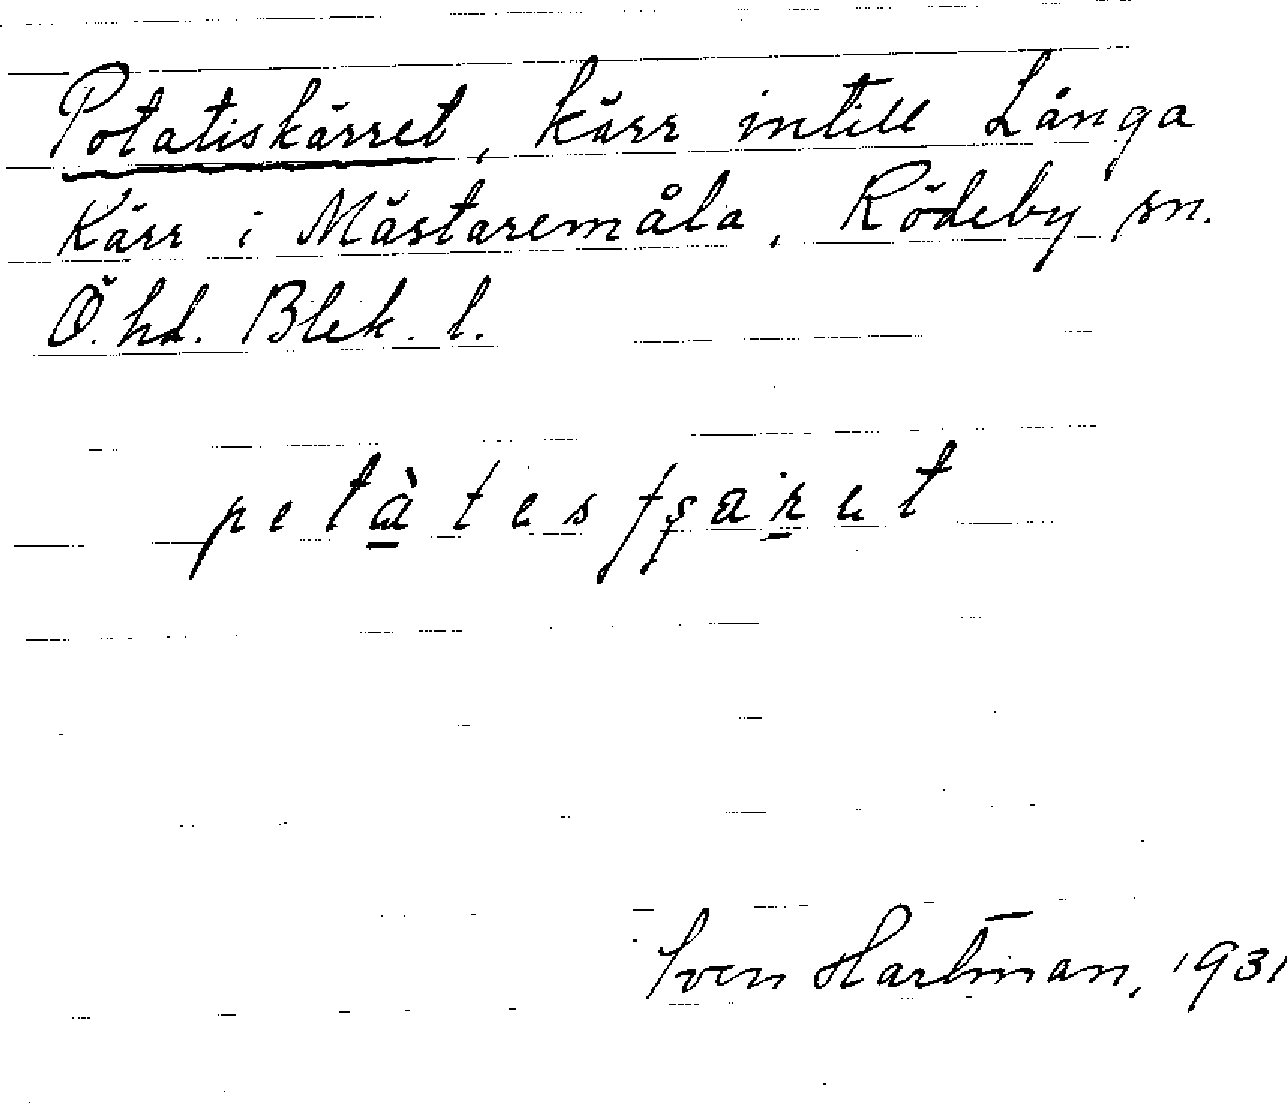 Potatiskärret, kärr intill Långa
Kärr i Mästaremåla, Rödeby sn.
Ö. hd. Blek. l.
Sven Hartman, 1931